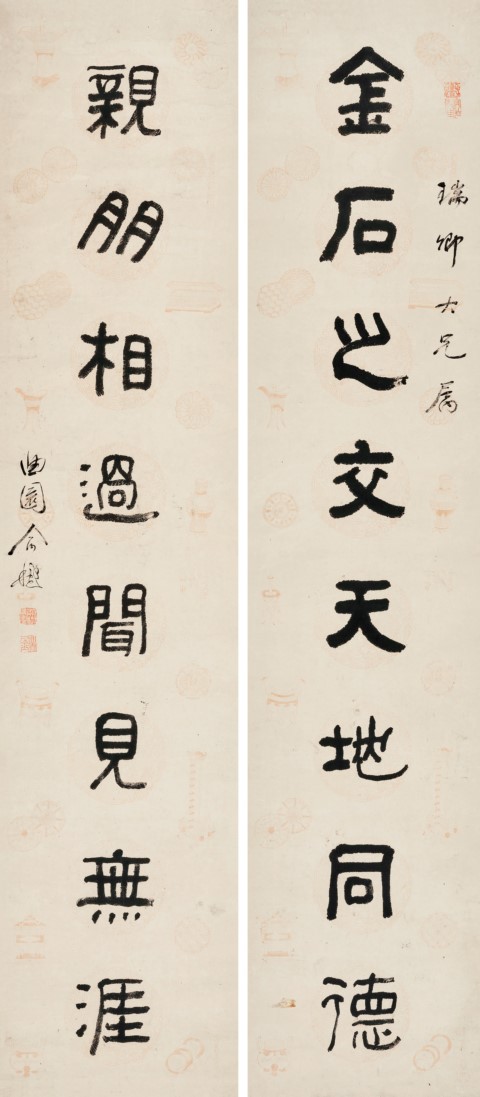 瑞卿大兄属
金石之交天地同德
親朋相過聞見無涯
曲園俞樾